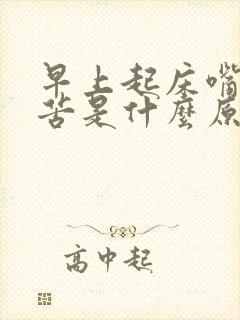 早上起床嘴
苦是什麼原
高中起